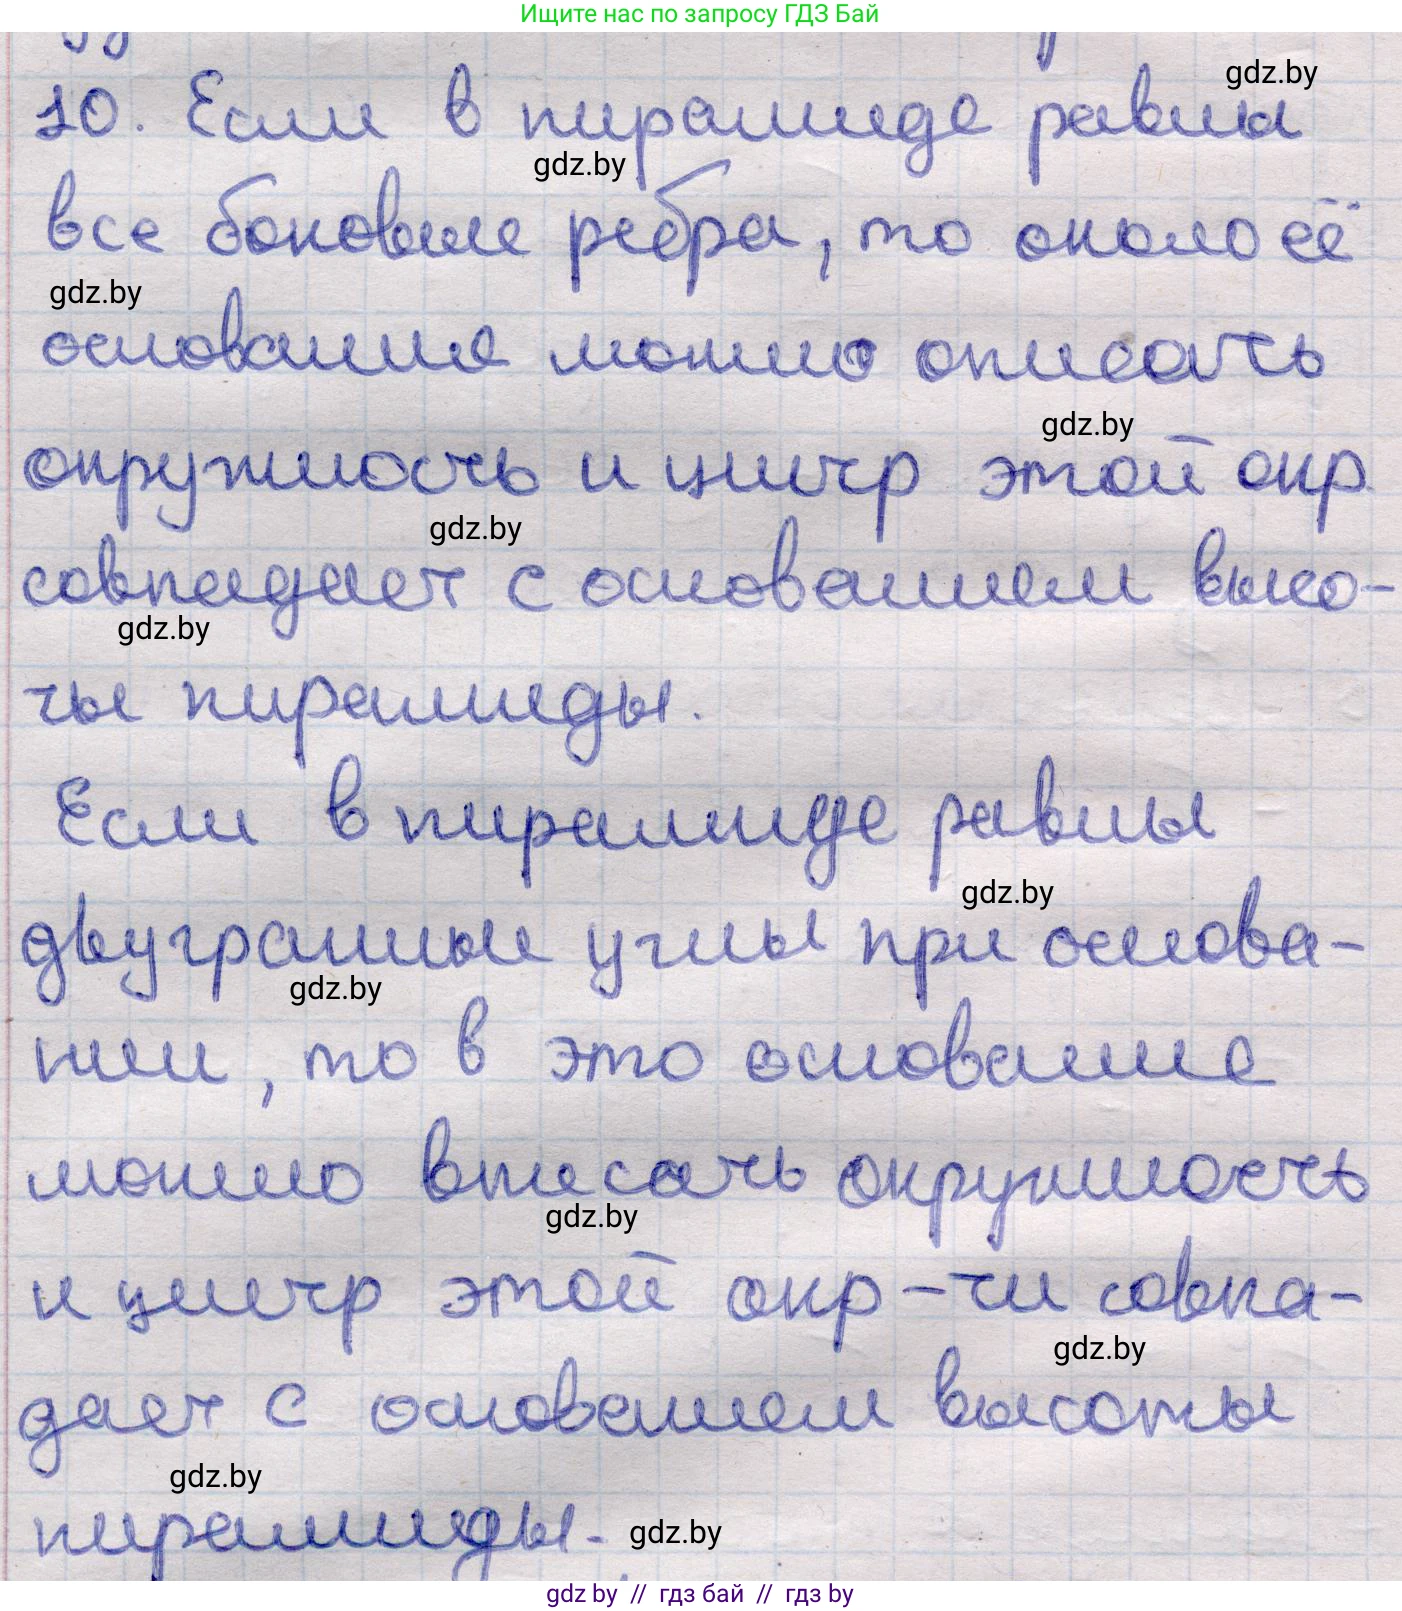 Ищите нас по запросу ГДЗ Бай
gdz.by
10. Если в пирамиде равны
gdz.by
все боковые ребра, то около её
gdz.by
основания можно описать
gdz.by
окружность и центр этой окр.
gdz.by
совпадает с основанием высо-
gdz.by
ты пирамиды.
Если в пирамиде равны
gdz.by
двугранные углы при основа-
gdz.by
нии, то в это основание
можно вписать окружность
gdz.by
и центр этой окр-ти совпа-
gdz.by
дает с основанием высоты
gdz.by
пирамиды.
gdz.by
gdz by // гдз бай // гдз by